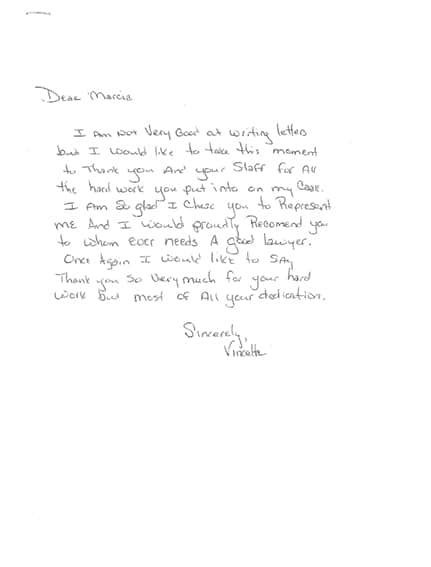 Dear Marcia
I Am Not Very Good at writing letters
but I would like to take this moment
to Thank you And your Staff for All
the hard work you put into on my Case.
I Am So glad I Chose you to Represent
me And I would proudly Recomend you
to whom ever needs A good lawyer.
Once Again I would like to SAy
Thank you So Very much for your hard
work but most of All your dedication.
Sincerely,
Vincetta